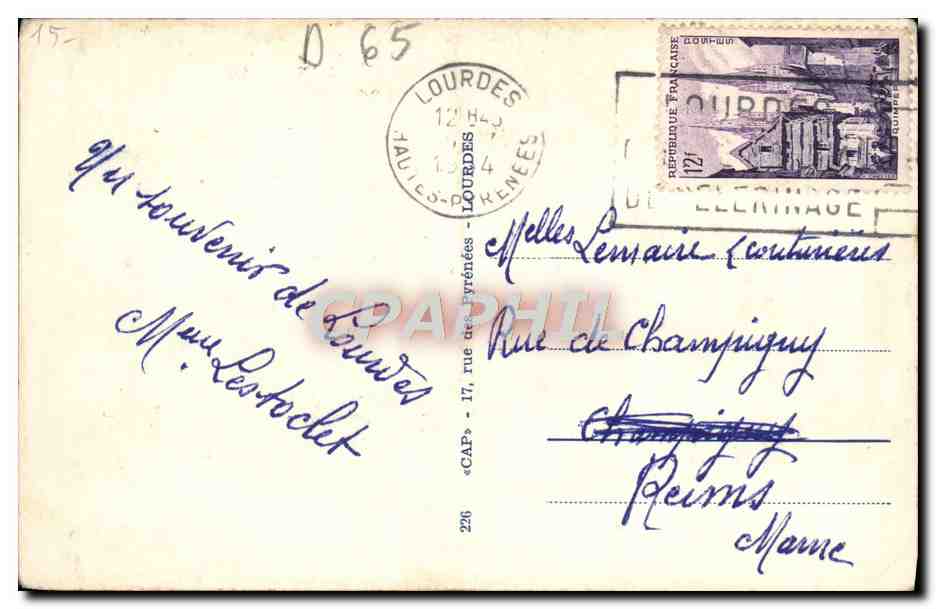 15-
D 65
LOURDES
12H45
HAUTES-PYRENEES
REPUBLIQUE FRANÇAISE
POSTES
12F
QUIMPER
LOURDES
DE PELERINAGE
Un souvenir de Lourdes
Mme Lestoclet
226 «CAP» - 17, rue des Pyrénées - LOURDES
Melles Lemaire couturières
Rue de Champigny
Champigny
Reims
Marne
CPAPHIL